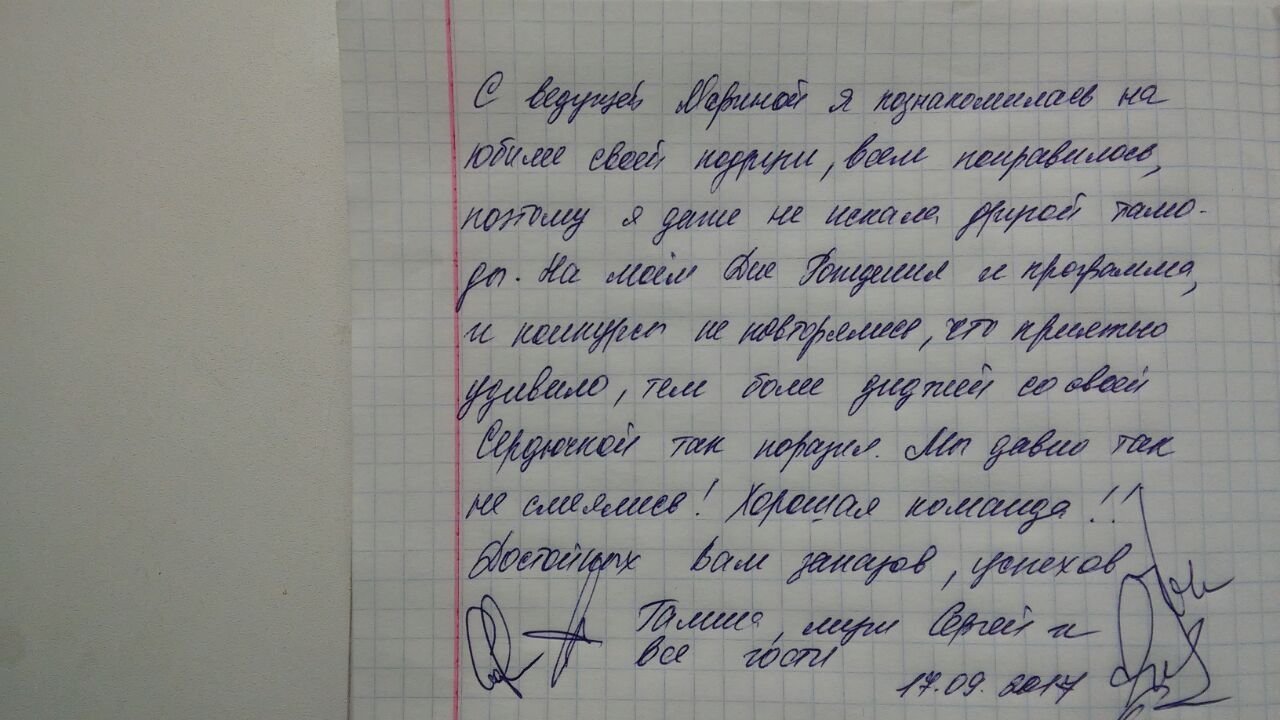 С ведущей Мариной я познакомилась на
юбилее своей подруги, всем понравилось,
поэтому я даже не искала другой тама-
ды. На моём Дне Рождения и программа,
и конкурсы не повторялись, что приятно
удивило, тем более диджей со своей
Сердючкой так поразил. Мы давно так
не смеялись! Хорошая команда!!
Достойных Вам заказов, успехов
Галина, муж Сергей и
все гости
17.09.2017